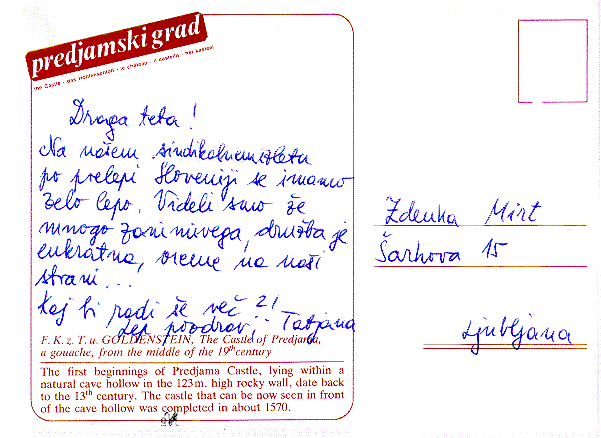 predjamski grad
the Castle · das Höhlenschloß · le château · il castello · het kasteel
Draga teta!
Na našem sindikalnem izletu
po prelepi Sloveniji se imamo
zelo lepo. Videli smo že
mnogo zanimivega, družba je
enkratna, vreme na naši
strani...
Kaj bi radi še več?!
Lep pozdrav, Tatjana
F. K. z. T. u. GOLDENSTEIN, The Castle of Predjama,
a gouache, from the middle of the 19th century
The first beginnings of Predjama Castle, lying within a
natural cave hollow in the 123m. high rocky wall, date back
to the 13th century. The castle that can be now seen in front
of the cave hollow was completed in about 1570.
Zdenka Mirt
Šarhova 15
Ljubljana